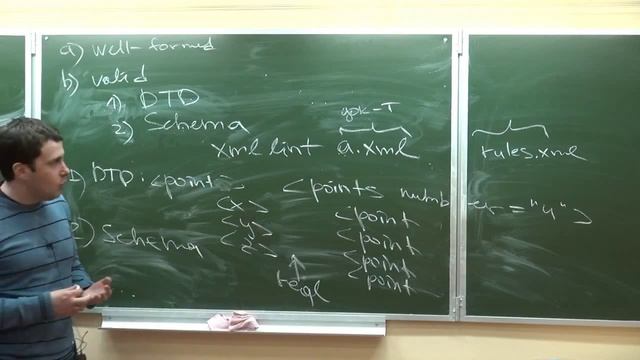 a) Well-formed
b) valid
1) DTD
2) Schema
док-т
xmllint a.xml rules.xml
1) DTD: <point <points number="4">
<x> <point
2) Schema <y> <point
<z> <point
real point